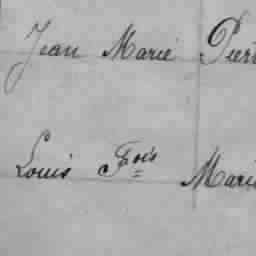 Jean Marie Pierr
Louis Fois Marie